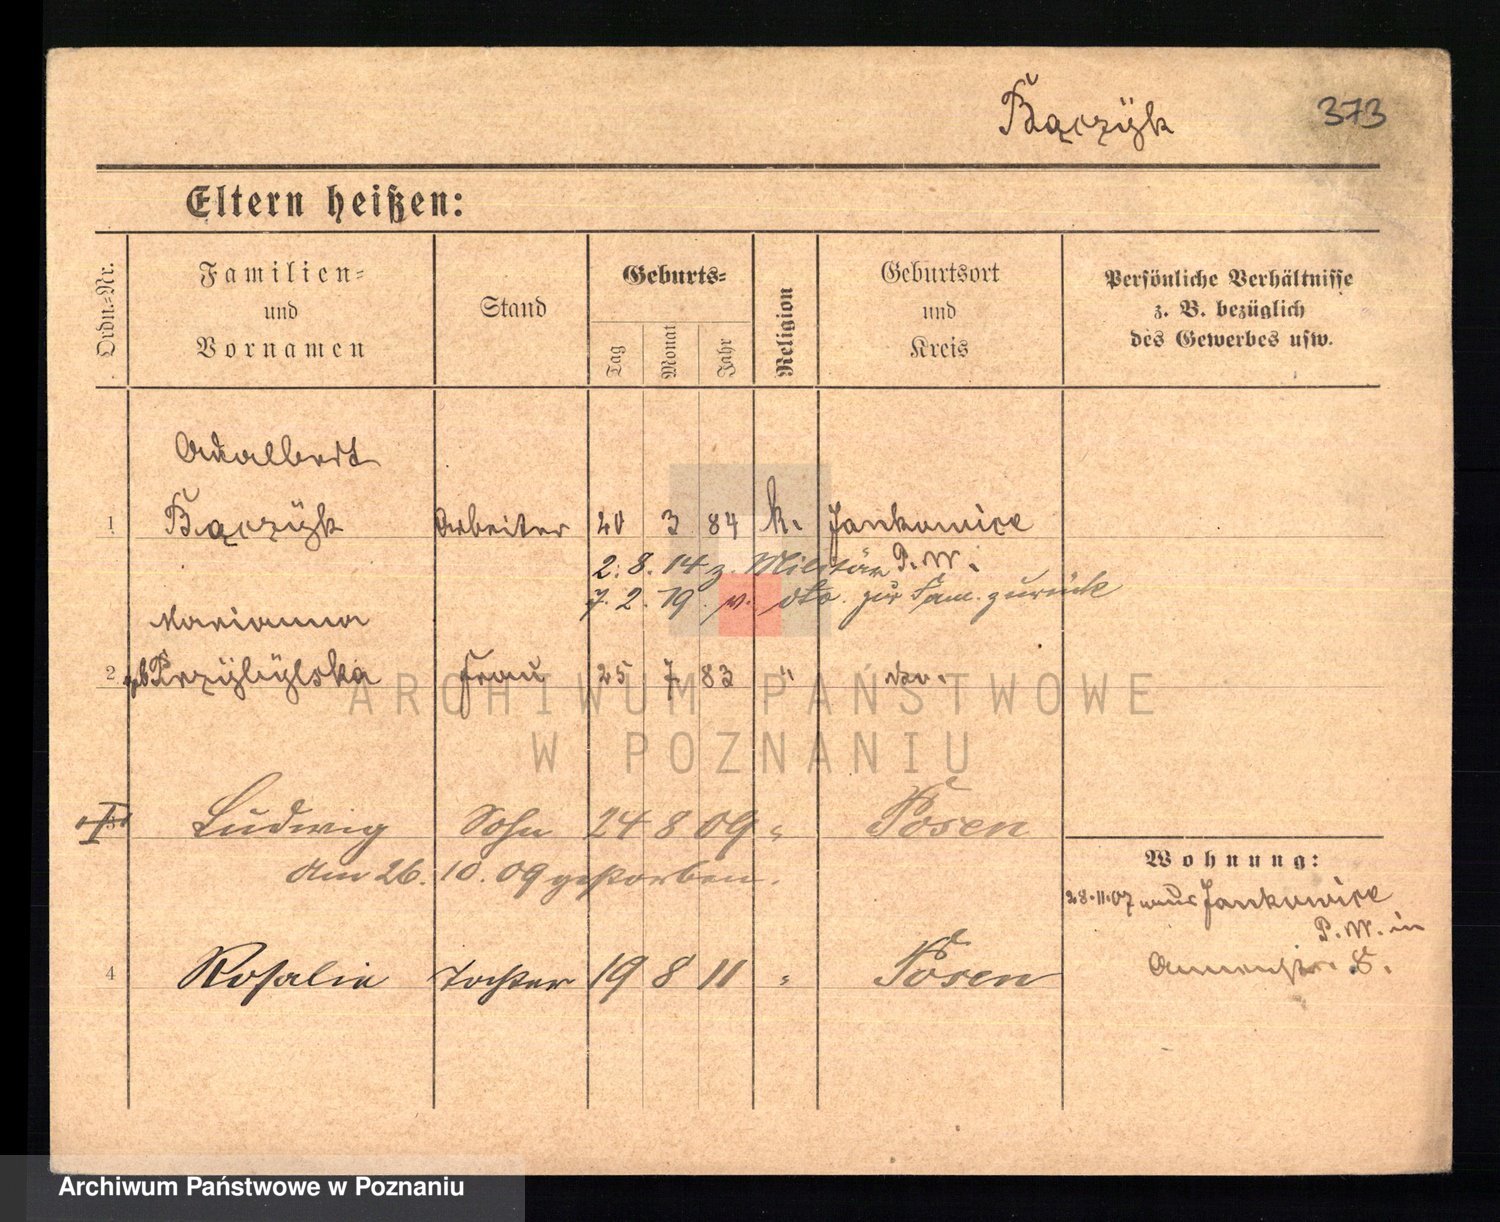 Bączÿk 373
Eltern heißen:
Ordn.-Nr. Familien- und Vornamen Stand Geburts- Tag Monat Jahr Religion Geburtsort und Kreis Persönliche Verhältnisse z. B. bezüglich des Gewerbes usw.
Adalbert
1 Bączÿk Arbeiter 20 3 84 k. Jankowice
P. W.
2. 8. 14 z. Militär
7. 2. 19 v. dto. zur Fam. zurück
Marianna
2 gb Przÿbÿlska Frau 25 7 83 " do.
3 Ludwig Sohn 24 8 09 " Posen
am 26. 10. 09 gestorben.
Wohnung:
28.11.07 aus Jankowice
P. W. in
8.
4 Rosalie Tochter 19 8 11 " Posen
ARCHIWUM PAŃSTWOWE
W POZNANIU
Archiwum Państwowe w Poznaniu